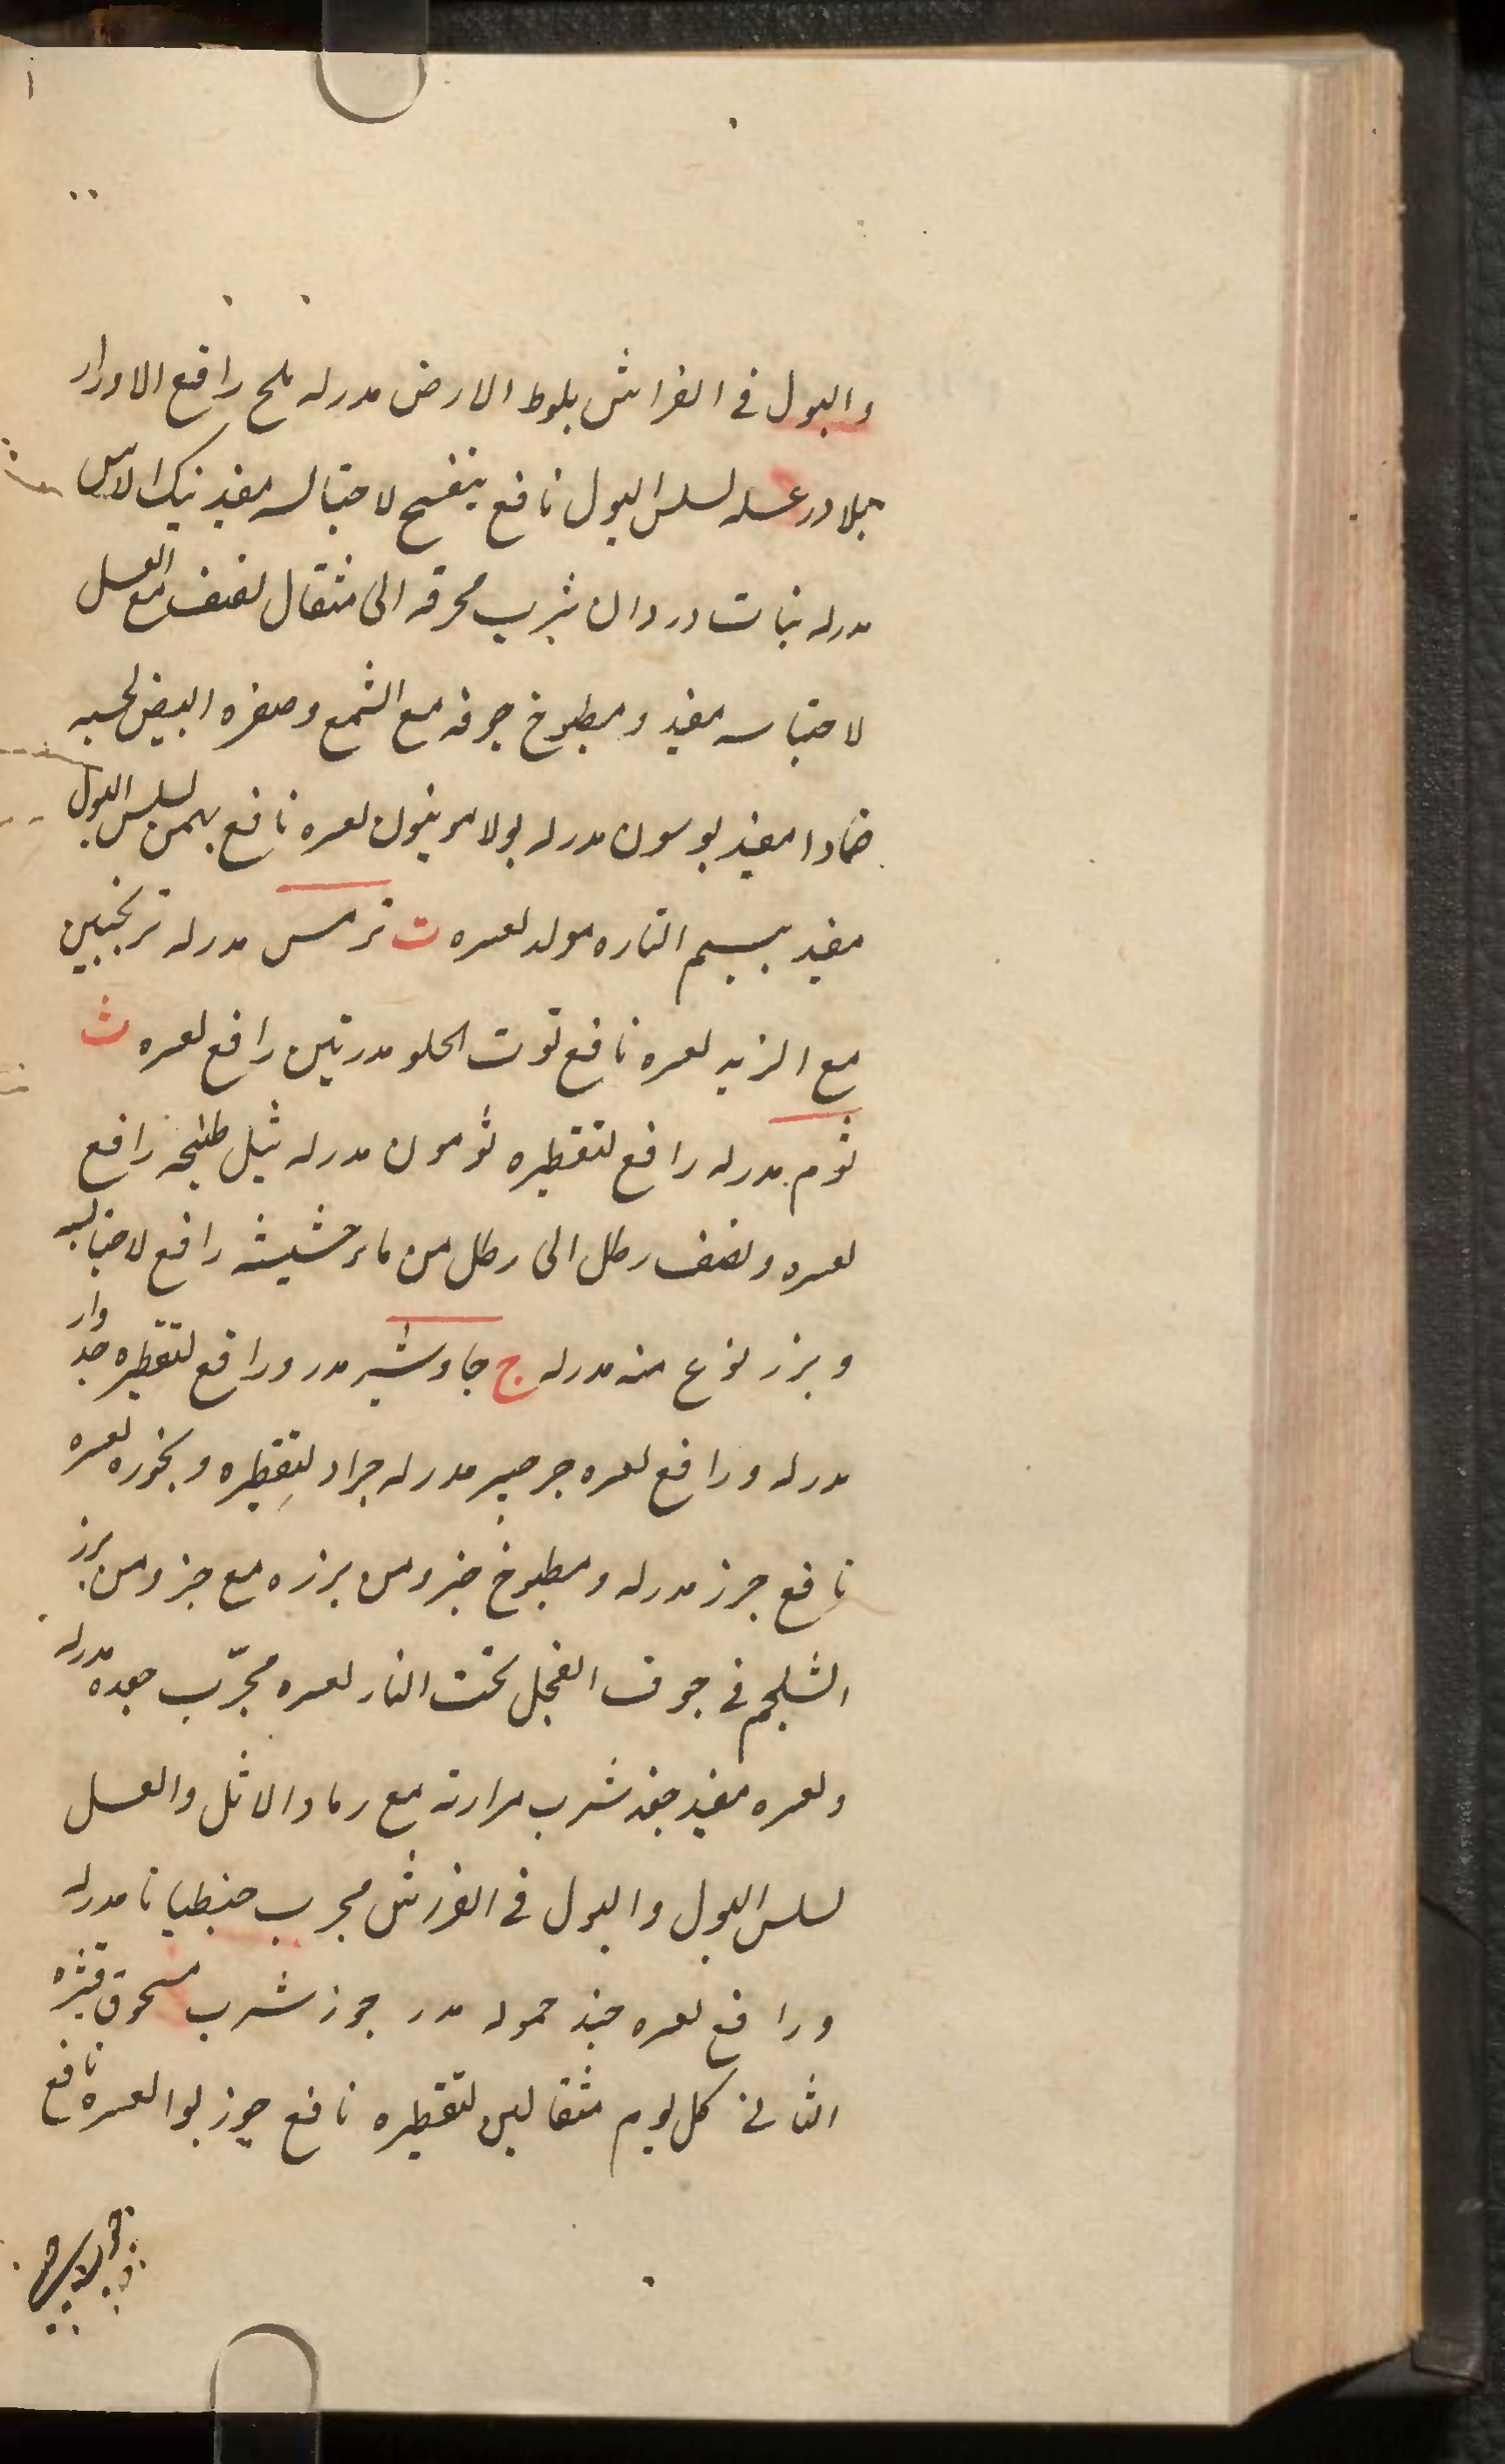 والبول فى الفراش بلوط الارض مدرله ملح رافع الادرار
بلادر عسله لسلس البول نافع بنفسج لاحتباسه مفيد نبك الاس
مدرله نبات وردان شرب محرقه الى مثقال لضعف مع العسل
لاحتباسه مفيد ومطبوخ جوفه مع الشمع وصفره البيض لحبسه
ضمادا مفيد بوسون مدرله بولامونيون لعسره نافع بهمن لسلس البول
مفيد بسيم التاره مولد لعسره ت ترمس مدرله ترنجبين
مع الزبد لعسره نافع توت الحلو مدر تين رافع لعسره ث
ثوم مدرله رافع لتقطيره ثومون مدرله ثيل طبيخه رافع
لعسره ونصف رطل الى رطل من ماء حشيشه رافع لاحتباسه
وبزر نوع منه مدرله ج جاوشير مدر ورافع لتقطيره جدوار
مدرله ورافع لعسره جرجير مدرله جراد لتقطيره وبخوره لعسره
نافع جزر مدرله ومطبوخ جزو من بزره مع جزو من بزر
الشلجم فى جوف الفجل تحت النار لعسره مجرّب جعده مدرله
ولعسره مفيد جفد شرب مرارته مع رماد الاثل والعسل
لسلس البول والبول فى الفرش مجرب جنطيانا مدرله
ورافع لعسره جند حموله مدر جوز شرب مسحوق قشره
الثانى كل يوم مثقالين لتقطيره نافع جوز بوا لعسره نافع